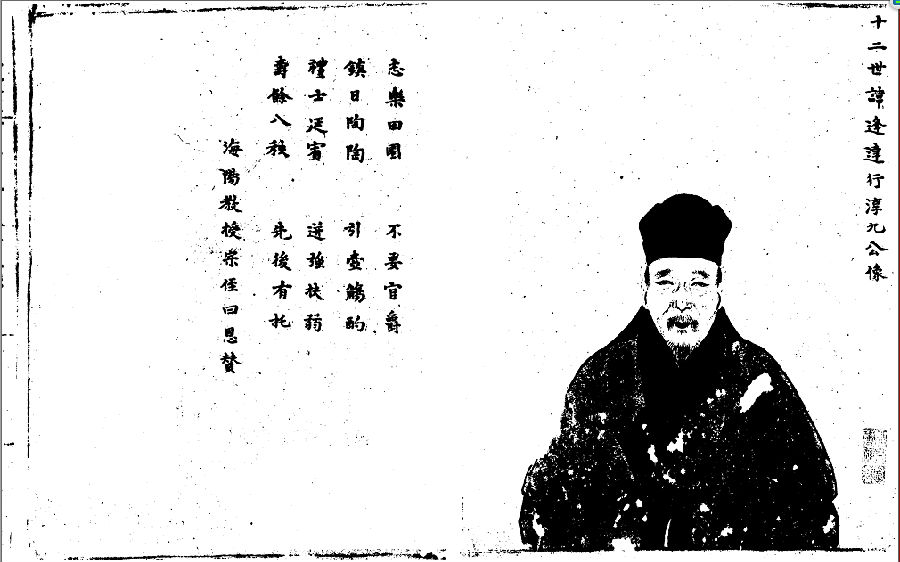 十二世諱逢達行淳九公像
志樂田園 不要官爵
鎮日陶陶 引壺觴酌
禮士延賓 逆強扶弱
壽餘八秩 先後有托
海陽教授宗侄曰恩贊